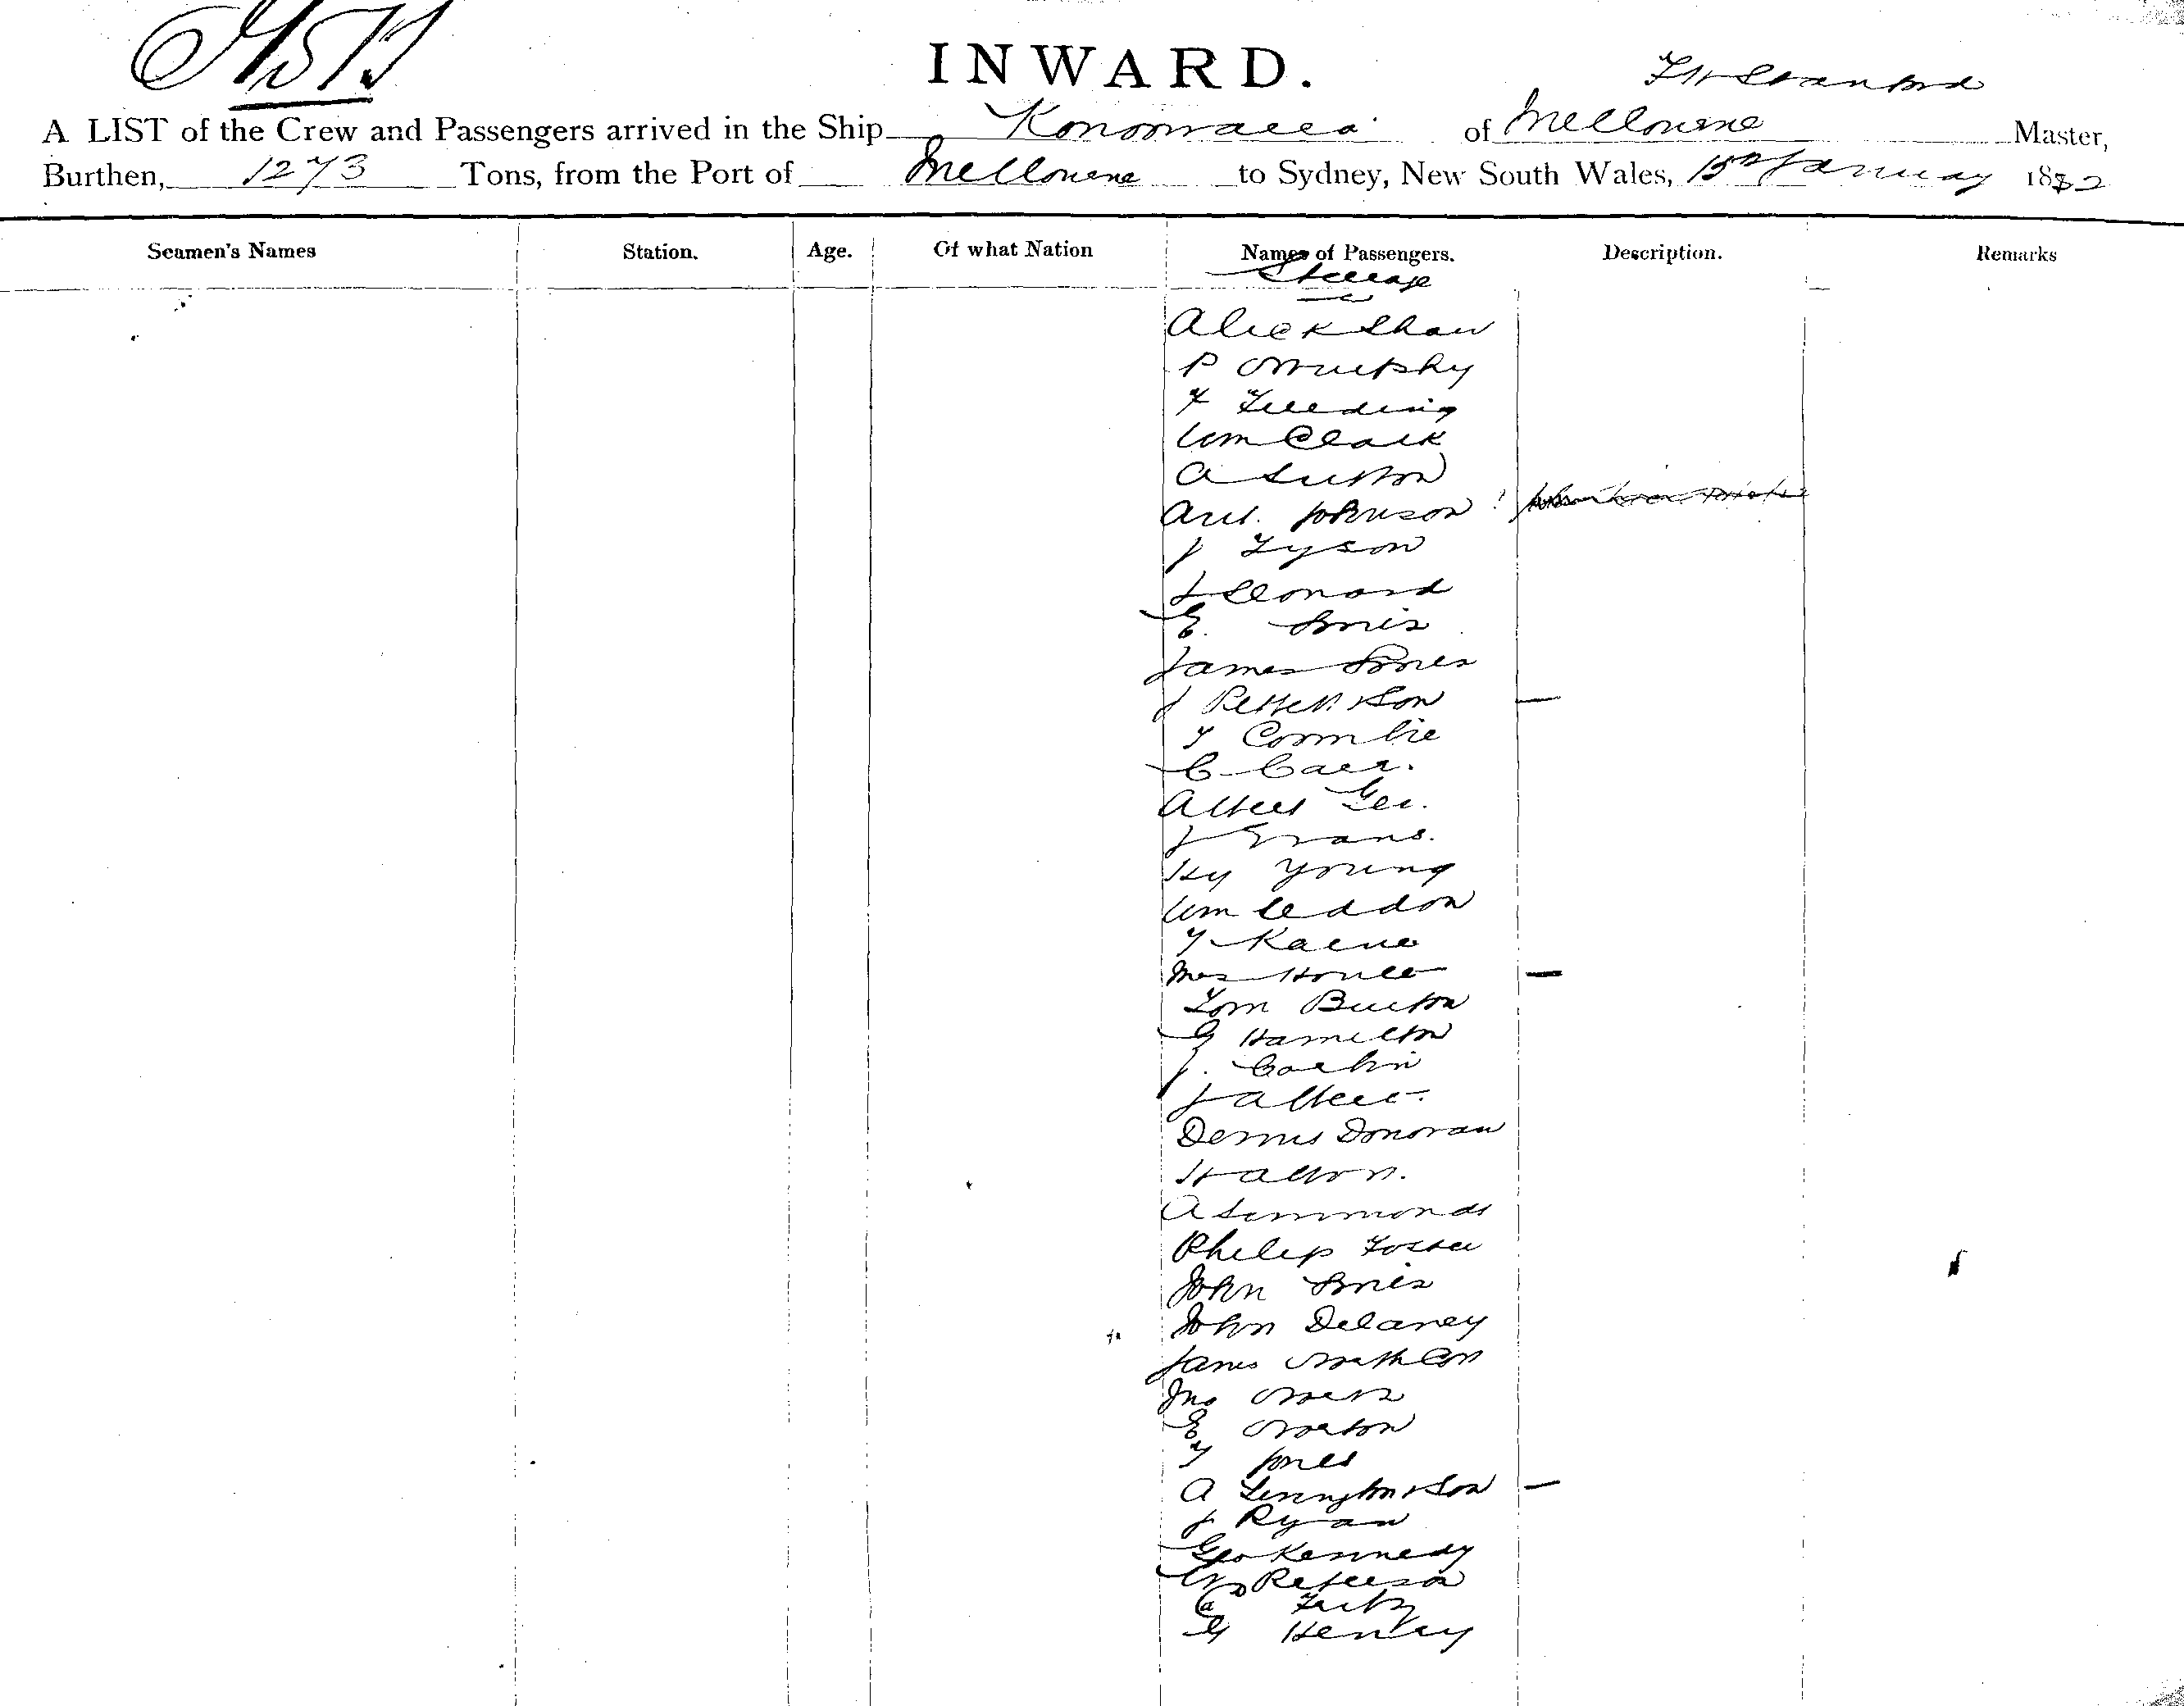 INWARD.
A LIST of the Crew and Passengers arrived in the Ship Konoowarra of Melbourne Master,
Burthen, 1273 Tons, from the Port of Melbourne to Sydney, New South Wales, 15th January 1882
Seamen's Names Station. Age. Of what Nation Names of Passengers. Description. Remarks
Steerage
Alick Shaw
P Murphy
Wm Clark
A Sutton
Art. Johnson
J Tyson
J Leonard
E. Jones
James Jones
J Pettett & Son
T Crombie
C Carr.
Albert Gee.
J Evans.
Hy Young
Wm Leddon
T Kaene
Mrs
Tom Burton
G Hamilton
J.
J Albert.
Dennis Donovan
H Alton.
A Simmonds
Philip Foster
John Jones
John Delaney
James
Jno
E Morton
T Jones
A & Son
J Ryan
Geo Kennedy
Peterson
G Henley